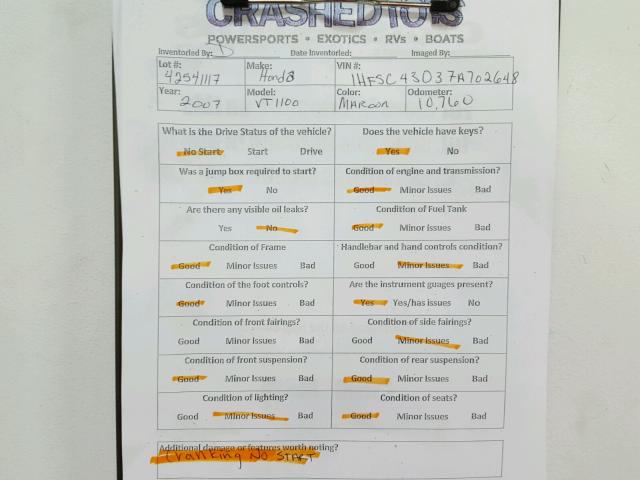 CRASHEDTOYS
POWERSPORTS • EXOTICS • RVs • BOATS
Inventoried By: D Date Inventoried: Imaged By:
Lot #: Make: VIN #:
42541117 Honda 1HFSC43D37A702648
Year: Model: Color: Odometer:
2007 VT1100 MAROON 10,760
What is the Drive Status of the vehicle? Does the vehicle have keys?
No Start Start Drive Yes No
Was a jump box required to start? Condition of engine and transmission?
Yes No Good Minor Issues Bad
Are there any visible oil leaks? Condition of Fuel Tank
Yes No Good Minor Issues Bad
Condition of Frame Handlebar and hand controls condition?
Good Minor Issues Bad Good Minor Issues Bad
Condition of the foot controls? Are the instrument guages present?
Good Minor Issues Bad Yes Yes/has issues No
Condition of front fairings? Condition of side fairings?
Good Minor Issues Bad Good Minor Issues Bad
Condition of front suspension? Condition of rear suspension?
Good Minor Issues Bad Good Minor Issues Bad
Condition of lighting? Condition of seats?
Good Minor Issues Bad Good Minor Issues Bad
Additional damage or features worth noting?
Cranking No START